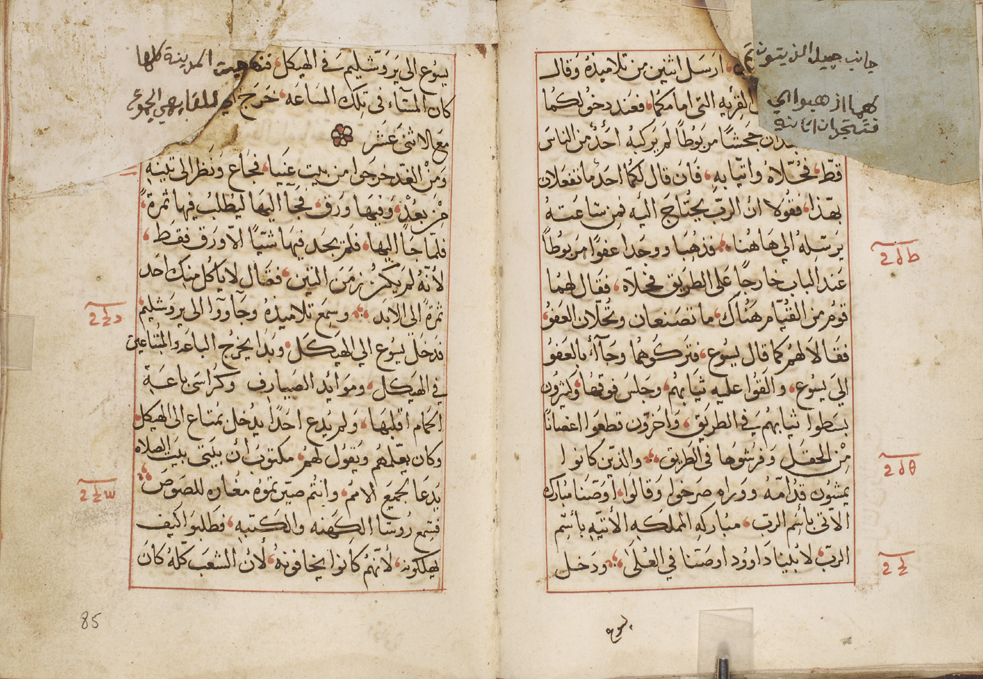 جانب جبل الزيتون ارسل اثنين من تلاميذه وقال
لهما اذهبوا الى القريه التي امامكما فعند دخولكما
فتجدان جحشا مربوطا لم يركبه احد من الناس
قط فحلاه واتيا به فان قال لكما احد ما تفعلان
بهذا فقولا ان الرب يحتاج اليه فمن ساعته
يرسله الى هاهنا فذهبا ووجدا عفوا مربوطا
عند الباب خارجا على الطريق فحلاه فقال لهما
قوم من القيام هناك ما تصنعان وتحلان العفو
فقالا لهم كما قال يسوع فتركوهما وجاآ بالعفو
الى يسوع والقوا عليه ثيابهم وجلس فوقها وكثيرون
بسطوا ثيابهم في الطريق واخرون قطعوا اغصانا
من الحقل وفرشوها في الطريق والذين كانوا
يمشون قدامه ووراه صرخوا وقالوا اوصنا مبارك
الاتي باسم الرب مباركه المملكه الاتيه باسم
الرب لابينا داوود اوصنا في العلى ودخل
يسوع
يسوع الى يروشليم في الهيكل المدينة كلها
كان المساء في تلك الساعه خرج
مع الاثنى عشر
ومن الغد خرجوا من بيت عنيا فجاع ونظر الى تينه
من بعد وفيها ورق فجا اليها ليطلب فيها ثمرة
فلما جا اليها فلم يجد فيها شيا الا ورق فقط
لانه لم يكن زمن التين فقال لا ياكل منك احد
ثمرة الى الابد وسمع تلاميذه وجاووا الى يروشليم
فدخل يسوع الى الهيكل وبدا يخرج الباعه والمبتاعين
في الهيكل وموايد الصيارف وكراسي باعة
الحمام اقلبها ولم يدع احدا يدخل بمتاع الى الهيكل
وكان يعلمهم ويقول لهم مكتوب ان بيتي بيت الصلاه
يدعا لجميع الامم وانتم صيرتموه مغاره للصوص
فسمع روسا الكهنه والكتبه فطلبوا كيف
يهلكونه لانهم كانوا يخافونه لان الشعب كله كان
85